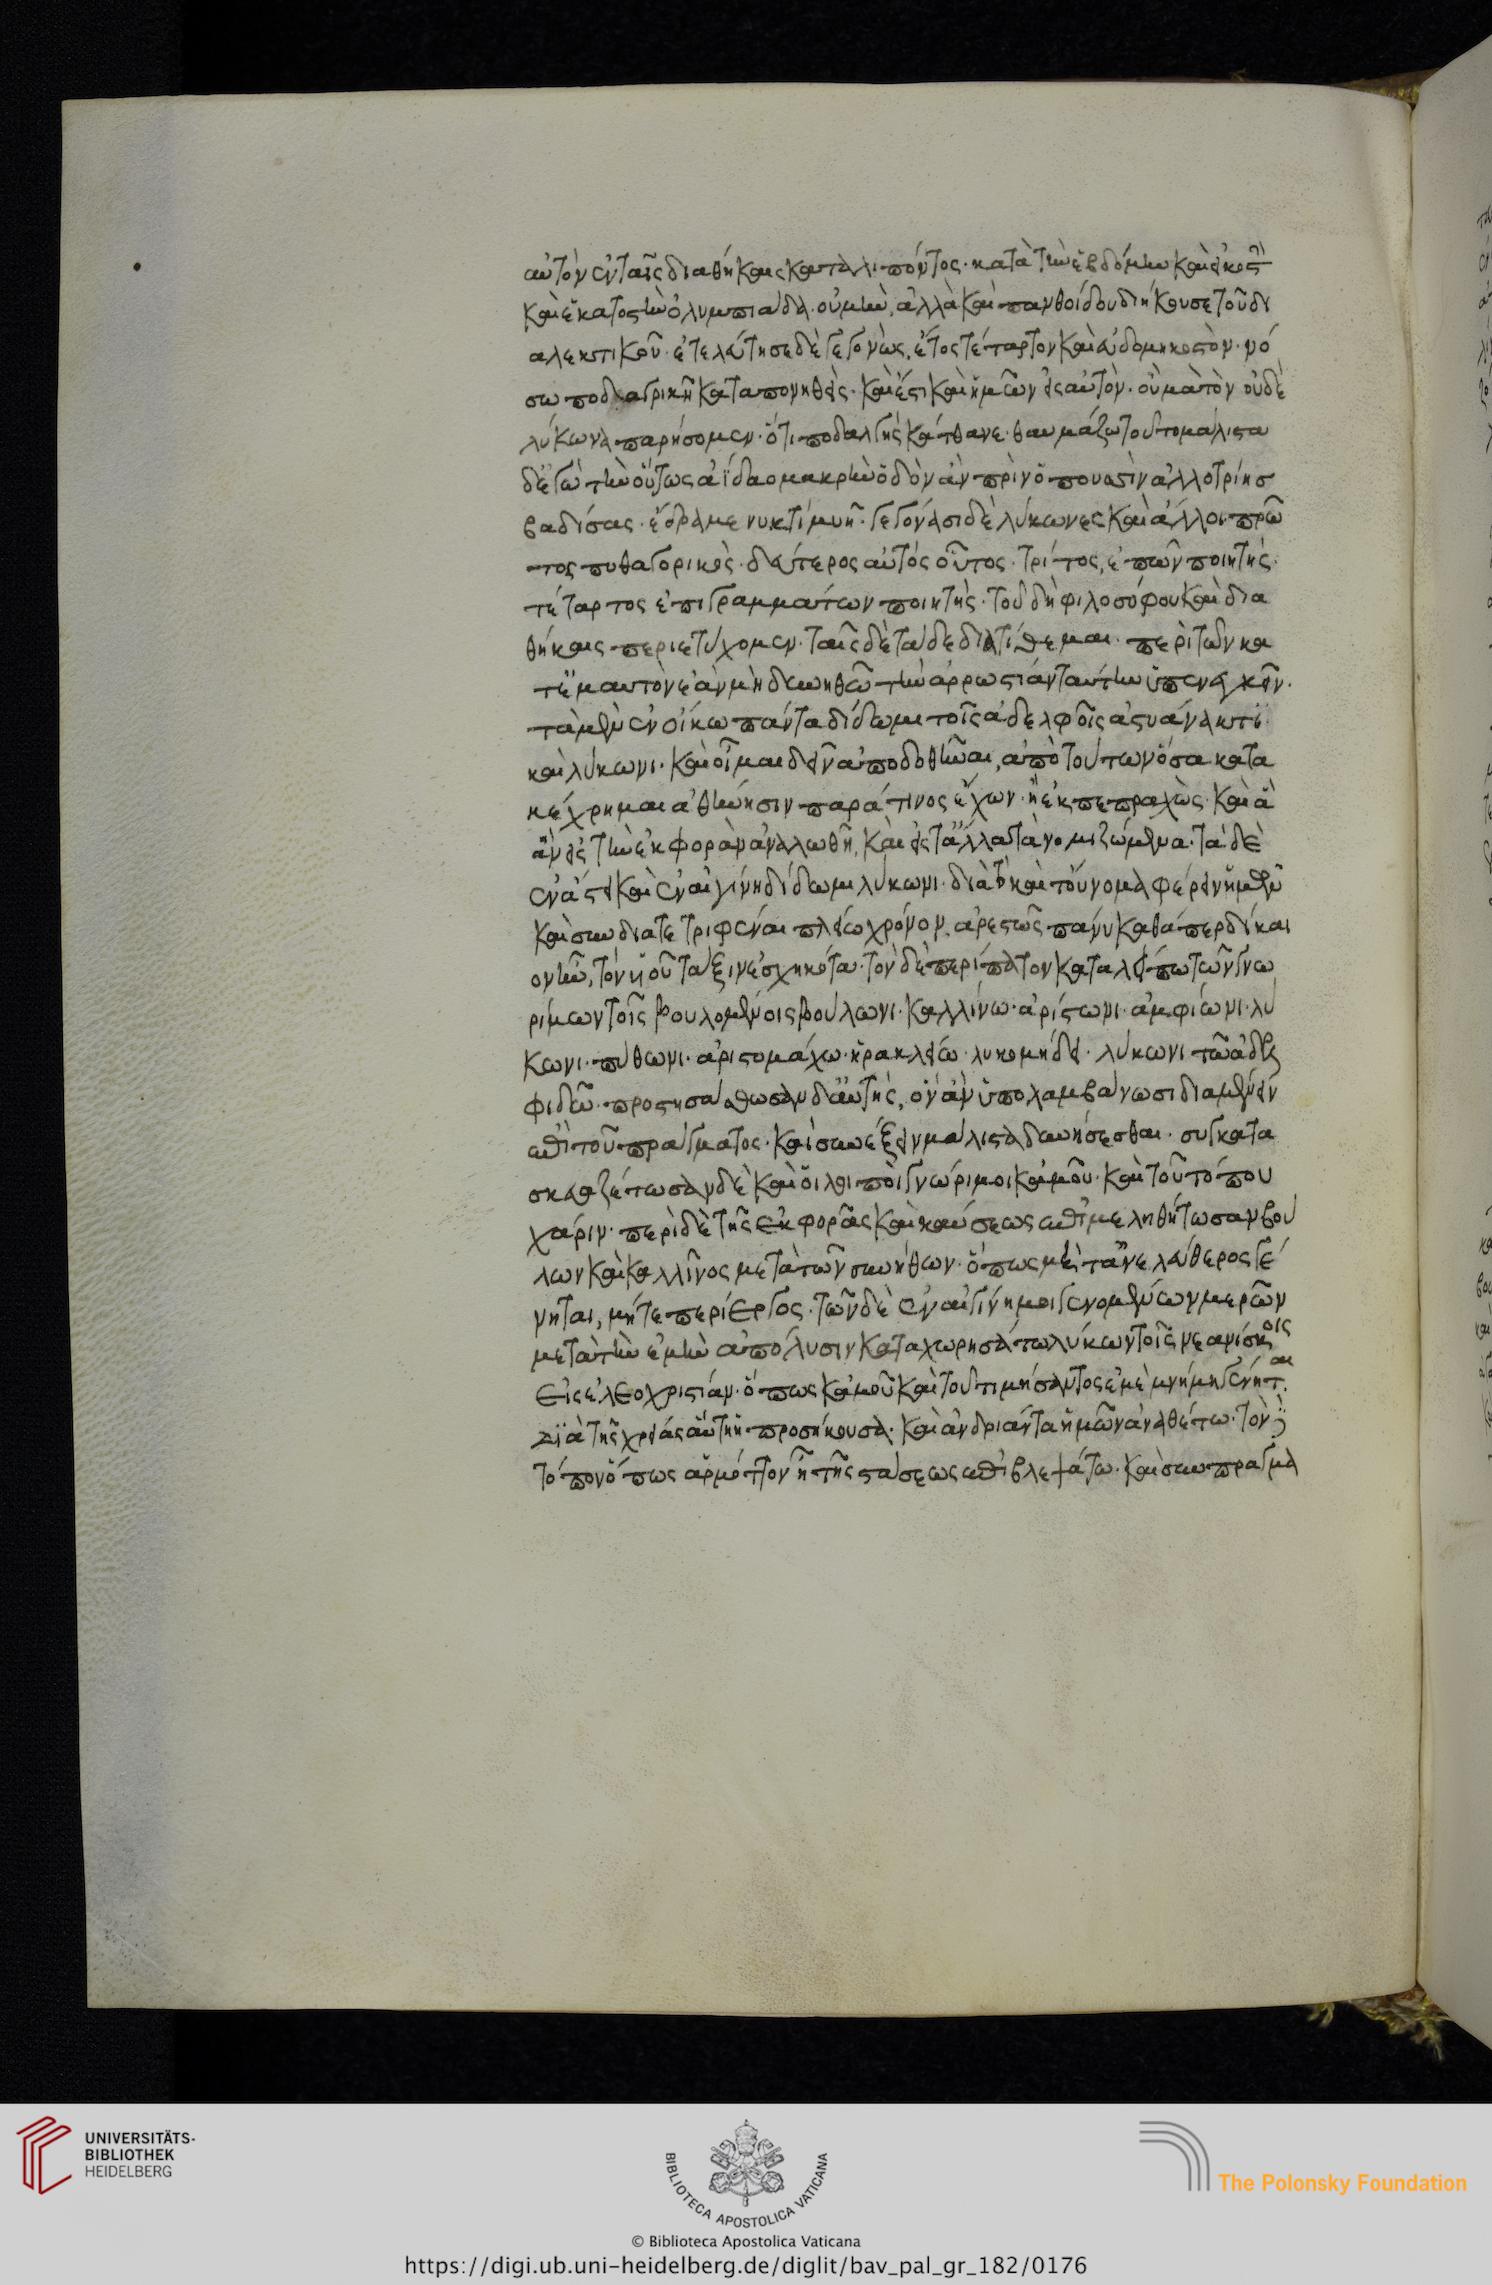 αὐτὸν ἐν ταῖς διαθήκαις καταλιπόντος· κατὰ τὴν ἑβδόμην καὶ εἰκοστὴν
καὶ ἑκατοστὴν ὀλυμπιάδα. οὐ μὴν, ἀλλὰ καὶ πανθοίδου διήκουσε τοῦ δι
αλεκτικοῦ· ἐτελεύτησε δὲ γεγονὼς, ἔτος τέταρτον καὶ ἑβδομηκοστὸν· νό
σω ποδαγρικῆ καταπονηθεὶς· καὶ ἔστι καὶ ἡμῶν εἰς αὐτὸν· οὐ μὰ τὸν οὐδὲ
λύκωνα παρήσομεν· ὅτι ποδαλγὴς κάτθανε· θαυμάζω τοῦτο μάλιστα
δ' ἐγὼ τὴν οὕτως ἀίδαο μακρὴν ὁδὸν ἀν πρὶν ὁ ποσσὶν ἀλλοτρίησ
βαδίσας· ἔδραμε νυκτὶ μιῆ· γεγόνασι δὲ λύκωνες καὶ ἄλλοι· πρῶ
τος πυθαγορικὸς· δεύτερος αὐτὸς οὗτος· τρίτος, ἐπῶν ποιητής·
τέταρτος ἐπιγραμμάτων ποιητὴς· τοῦ δὴ φιλοσόφου καὶ δια
θήκαις περιετύχομεν· ταῖς δὲ τάδε διατίθεμαι· περὶ τῶν κα
τ' ἐμαυτὸν ἐὰν μὴ δυνηθῶ τὴν ἀρρωστίαν ταύτην ὑπενεγκεῖν·
τὰ μὲν ἐν οἴκω πάντα δίδωμι τοῖς ἀδελφοῖς ἀστυάνακτι
καὶ λύκωνι· καὶ οἶμαι δεῖν ἀποδοθῆναι, ἀπὸ τούτων ὅσα κατα
κέχρημαι ἀθήνησιν παρά τινος ἔχων· ἢ ἐκπεπραχὼς· καὶ ἃ
ἂν εἰς τὴν ἐκφορὰν ἀναλωθῆ, καὶ εἰς τἄλλα τὰ νομιζόμενα· τὰ δὲ
ἐν ἄστει καὶ ἐν αἰγίνη δίδωμι λύκωνι· διὰ τὸ καὶ τοὔνομα φέρειν ἡμῖν
καὶ συνδιατετριφέναι πλείω χρόνον, ἀρεστῶς πάνυ καθάπερ δίκαι
ον ἦν, τὸν υἱοῦ τάξιν ἐσχηκότα· τὸν δὲ περίπατον καταλείπω τῶν γνω
ρίμων τοῖς βουλομένοις βούλωνι· καλλίνω· ἀρίστωνι· ἀμφίωνι· λύ
κωνι· πύθωνι· ἀριστομάχω· ἡρακλείω· λυκομήδει· λύκωνι τῶ ἀδελ
φιδῶ· προστησάσθωσαν δ' αὐτῆς, ὃν ἂν ὑπολαμβάνωσι διαμένειν
ἐπὶ τοῦ πράγματος· καὶ συνέξειν μάλιστα δυνήσεσθαι· συγκατα
σκευαζέτωσαν δὲ καὶ οἱ λοιποὶ γνώριμοι κἀμοῦ· καὶ τοῦ τόπου
χάριν· περὶ δὲ τῆς ἐκφορᾶς καὶ καύσεως ἐπιμεληθήτωσαν βού
λων καὶ καλλῖνος μετὰ τῶν συνήθων· ὅπως μήτ' ἀνελεύθερος γέ
νηται, μήτε περίεργος· τῶν δὲ ἐν αἰγίνη μοι γενομένων μερῶν
μετὰ τὴν ἐμὴν ἀπόλυσιν καταχωρησάτω λύκων τοῖς νεανίσκοις
εἰς ἐλεοχριστίαν· ὅπως κἀμοῦ καὶ τοῦ τιμήσαντος ἐμὲ μνήμη γένηται
διὰ τῆς χρείας αὕτη ἡ προσήκουσα· καὶ ἀνδριάντα ἡμῶν ἀναθέτω· τὸν δὲ
τόπον ὅπως ἁρμόττον ᾖ τῆς στάσεως ἐπιβλεψάτω· καὶ συμπραγμα
UNIVERSITÄTS-
BIBLIOTHEK
HEIDELBERG
BIBLIOTECA APOSTOLICA VATICANA
The Polonsky Foundation
© Biblioteca Apostolica Vaticana
https://digi.ub.uni-heidelberg.de/diglit/bav_pal_gr_182/0176